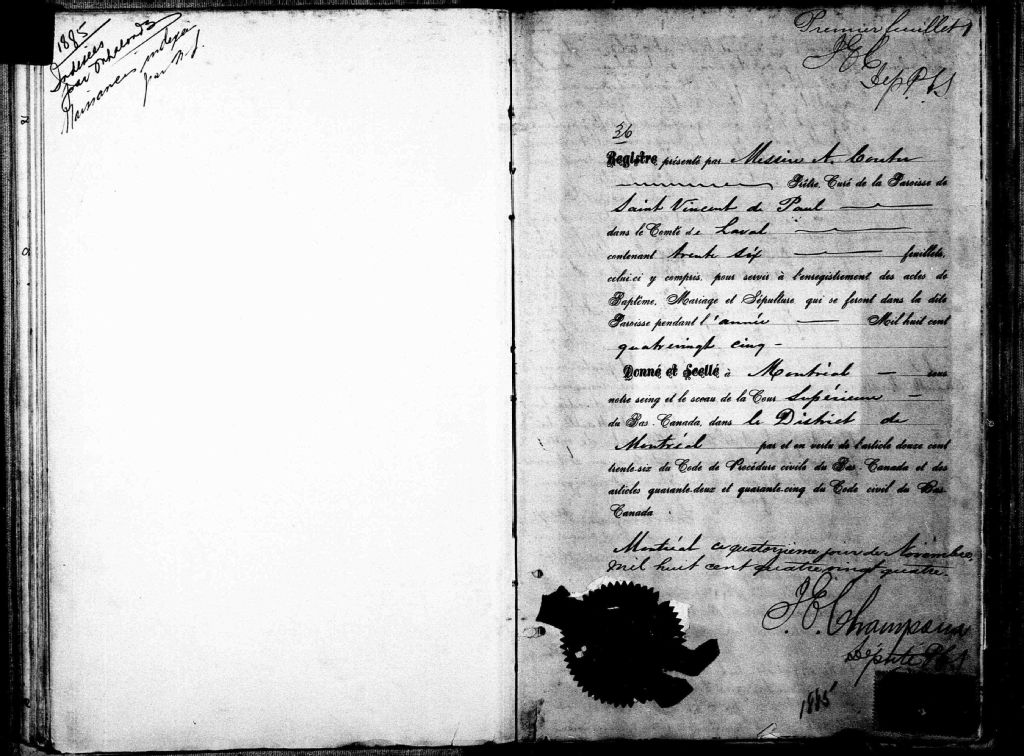 1885
Indexées
par
Naissances indexées
par
Premier feuillet
J E C
Dep. P. C S
36
Registre présenté par Messire A. Coutu
Prêtre, Curé de la Paroisse de
Saint Vincent de Paul
dans le Comté de Laval
contenant trente six feuillets,
celui-ci y compris, pour servir à l'enregistrement des actes de
Baptême, Mariage et Sépulture qui se feront dans la dite
Paroisse pendant l'année Mil huit cent
quatrevingt cinq -
Donné et Scellé à Montréal - sous
notre seing et le sceau de la Cour Supérieure -
du Bas-Canada, dans le District de
Montréal par et en vertu de l'article douze cent
trente-six du Code de Procédure civile du Bas-Canada et des
articles quarante-deux et quarante-cinq du Code civil du Bas
Canada.
Montréal ce quatorzième jour de Novembre,
mil huit cent quatre vingt quatre.
J. E. Champoux
Député P C S
1885